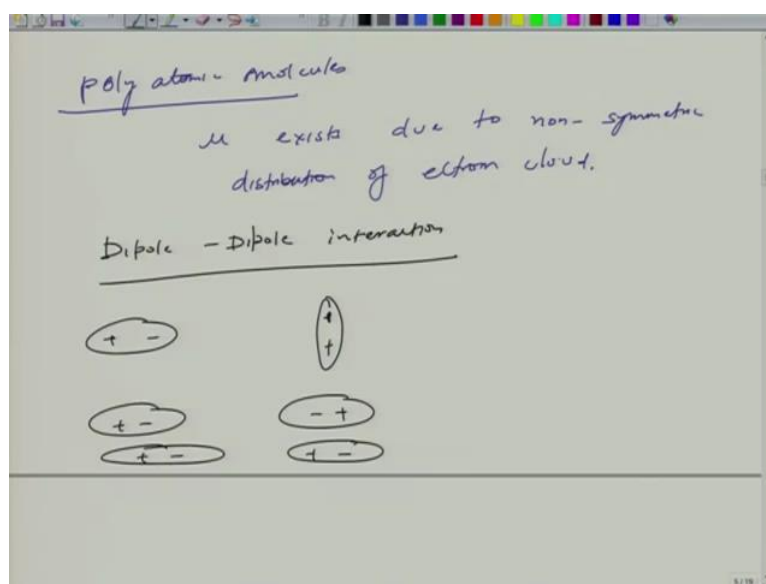 poly atomic molecules
μ exists due to non-symmetric
distribution of ectrom cloud.
Dipole - Dipole interaction
+ - + +
+ - - +
+ - + -